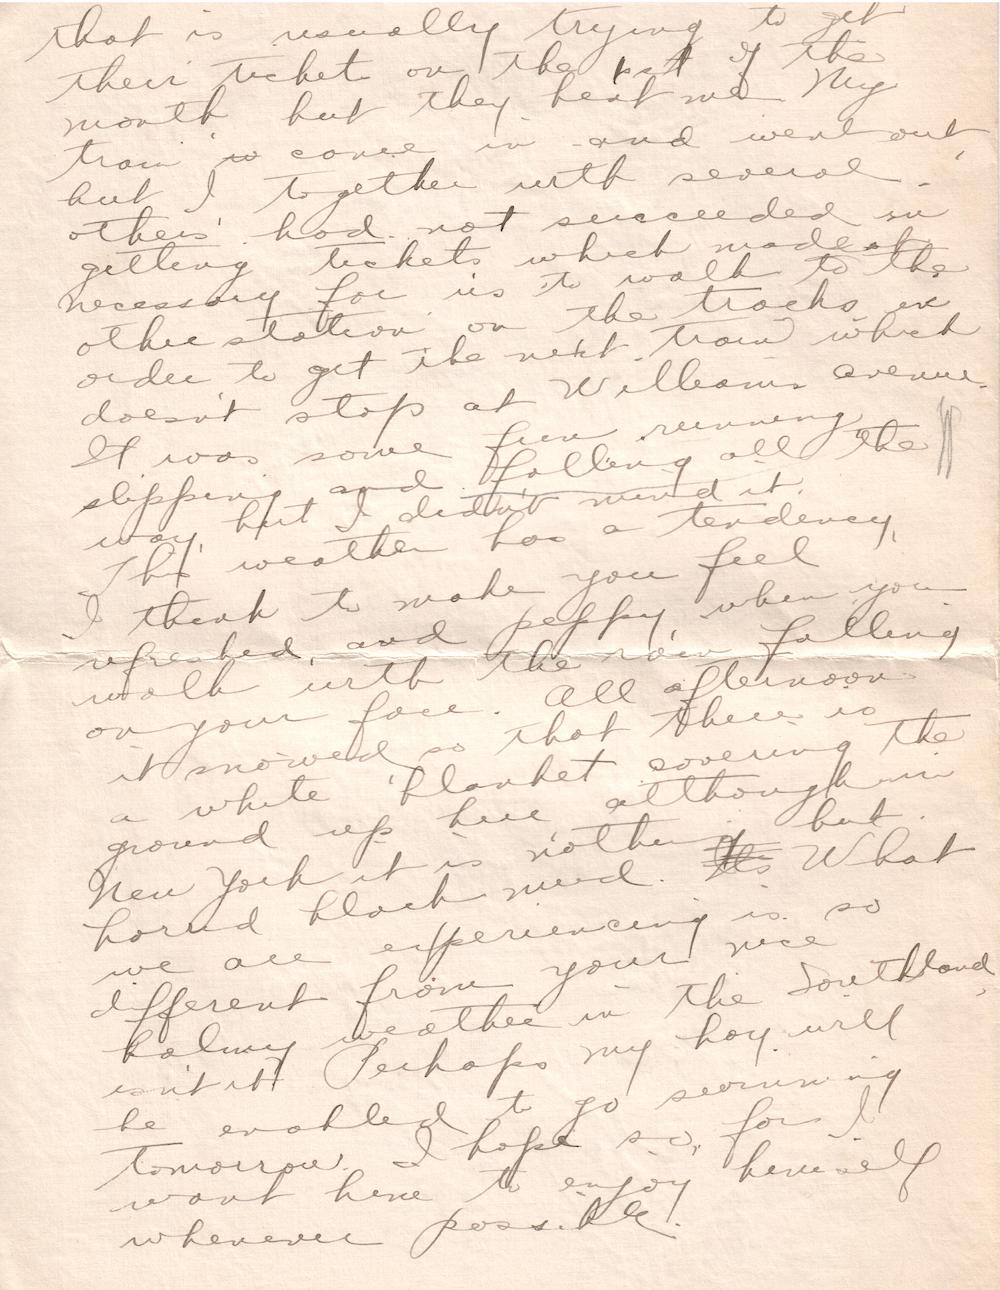 that is usually trying to get
their tickets on the 1st of the
month but they beat me. My
train came in and went out,
but I together with several
others had not succeeded in
getting tickets which made it
necessary for us to walk to the
other station on the tracks in
order to get the next train which
doesn't stop at Williams avenue.
It was some fun running,
slipping and falling all the
way, but I didn't mind it.
This weather has a tendency,
I think to make you feel
refreshed, and peppy, when you
walk with the rain falling
on your face. All afternoon
it snowed so that there is
a white blanket covering the
ground up here although in
New York it is nothing but
horrid black mud. What
we are experiencing is so
different from your nice
balmy weather in the Southland,
isn't it? Perhaps my boy will
be enabled to go swimming
tomorrow. I hope so, for I
want him to enjoy himself
whenever possible.